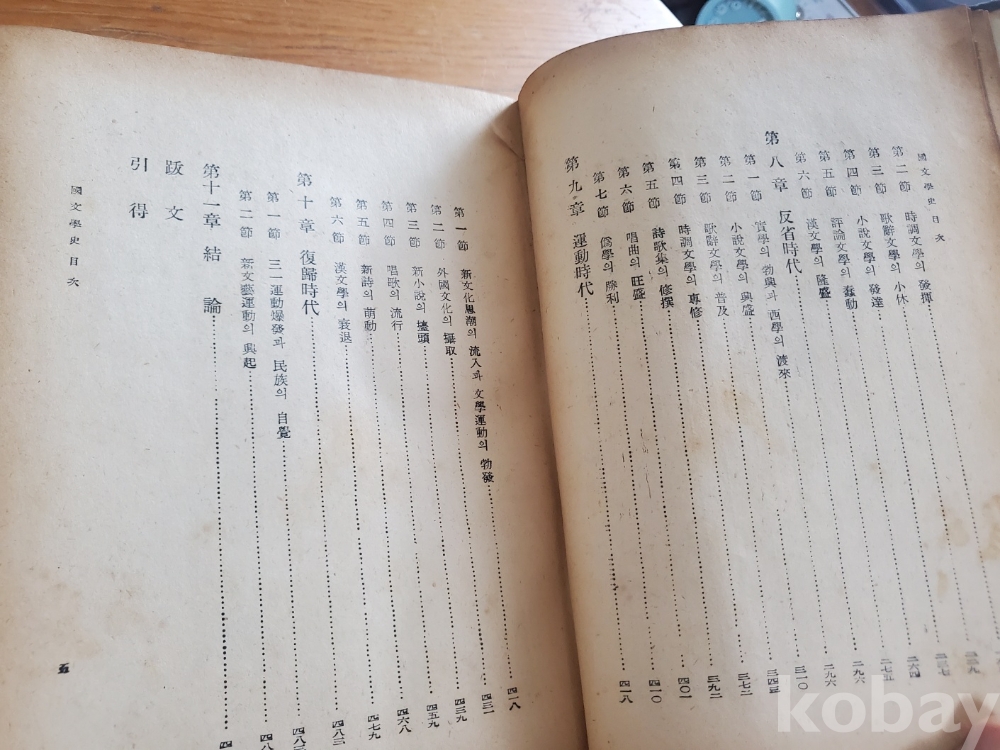 國文學史目次
第二節 時調文學의 發揮
第三節 歌辭文學의 小休 二二九
第四節 小說文學의 發達 二三七
第五節 評論文學의 蠢動 二六四
第六節 漢文學의 隆盛 二七五
第八章 反省時代 二九六
第一節 實學의 勃興과 西學의 渡來 二九六
第二節 小說文學의 興盛 三一〇
第三節 歌辭文學의 普及 三四五
第四節 時調文學의 專修 三七二
第五節 詩歌集의 修撰 三九二
第六節 唱曲의 旺盛 四〇一
第七節 儒學의 勝利 四一〇
第九章 運動時代 四一八
第一節 新文化思潮의 流入과 文學運動의 勃發 四一八
第二節 外國文化의 攝取 四三一
第三節 新小說의 擡頭 四三九
第四節 唱歌의 流行 四五九
第五節 新詩의 萌動 四六八
第六節 漢文學의 衰退 四七九
第十章 復歸時代 四八三
第一節 三一運動爆發과 民族의 自覺 四八三
第二節 新文藝運動의 興起 四八
第十一章 結論 四
跋文
引得
國文學史目次
五
kobay